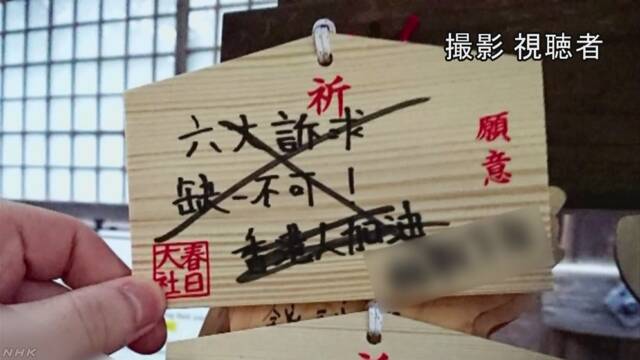 撮影 視聴者
祈
願意
六大訴求
缺一不可！
香港人加油
春日大社
NHK